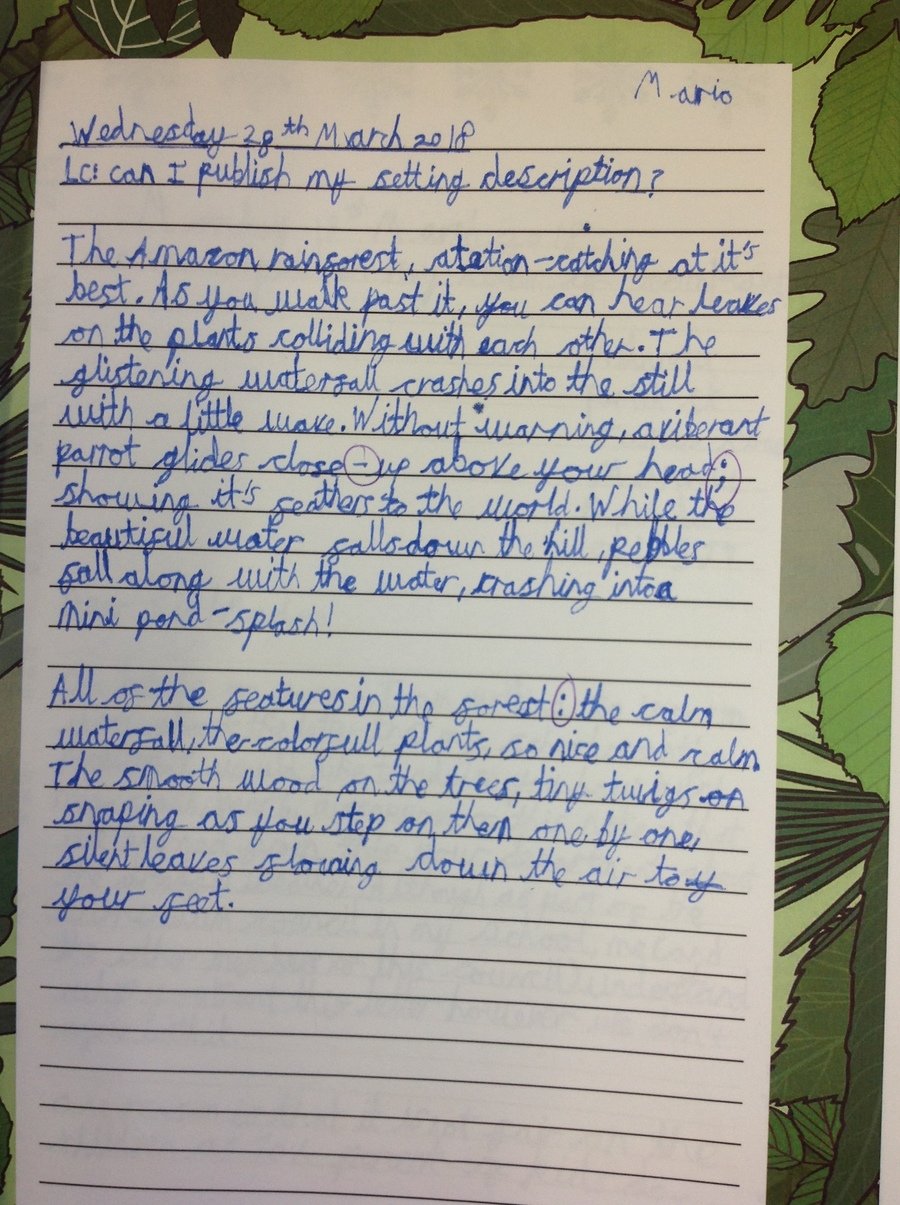 Mario
Wednesday 28th March 2018
Lc: can I publish my setting description?
The Amazon rainforest, atation-catching at it's
best. As you walk past it, you can hear leaves
on the plants colliding with each other. The
glistening waterfall crashes into the still
with a little wave. Without warning, a viberant
parrot glides close-up above your head;
showing it's feathers to the world. While the
beautiful water falls down the hill, pebbles
fall along with the water, crashing into a
mini pond-splash!
All of the features in the forest: the calm
waterfall, the colorfull plants, so nice and calm.
The smooth wood on the trees, tiny twigs
snaping as you step on them one by one,
silent leaves flowing down the air to
your feet.